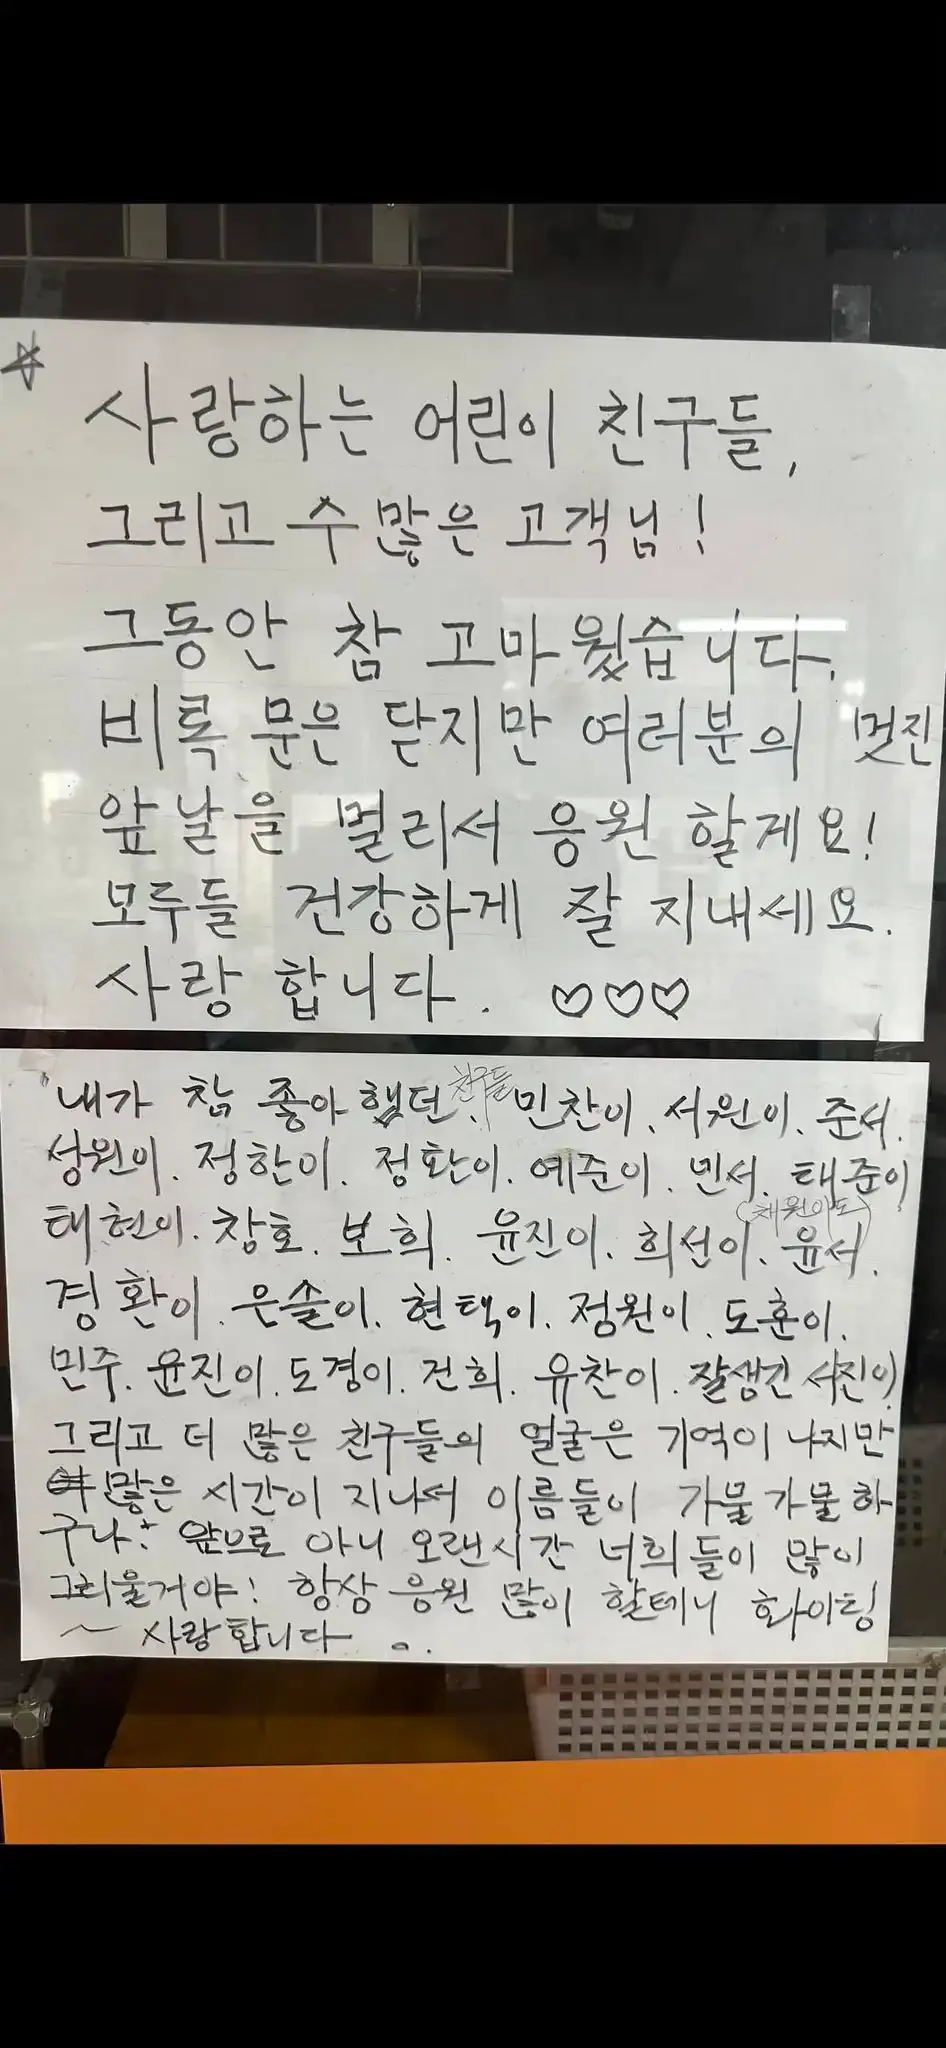 사랑하는 어린이 친구들,
그리고 수 많은 고객님!
그동안 참 고마웠습니다.
비록 문은 닫지만 여러분의 멋진
앞날을 멀리서 응원 할게요!
모두들 건강하게 잘 지내세요.
사랑 합니다. ♡♡♡
내가 참 좋아했던 친구들 민찬이. 서원이. 준서.
성원이. 정한이. 정환이. 예준이. 민서. 태준이
태현이. 창호. 보희. 윤진이. 희선이. (채원이도) 윤서.
경환이. 은솔이. 현택이. 정원이. 도훈이.
민주. 윤진이. 도경이. 건희. 유찬이. 잘생긴 서진이
그리고 더 많은 친구들의 얼굴은 기억이 나지만
많은 시간이 지나서 이름들이 가물가물하
구나. 앞으로 아니 오랜시간 너희들이 많이
그리울거야! 항상 응원 많이 할테니 화이팅
~ 사랑합니다